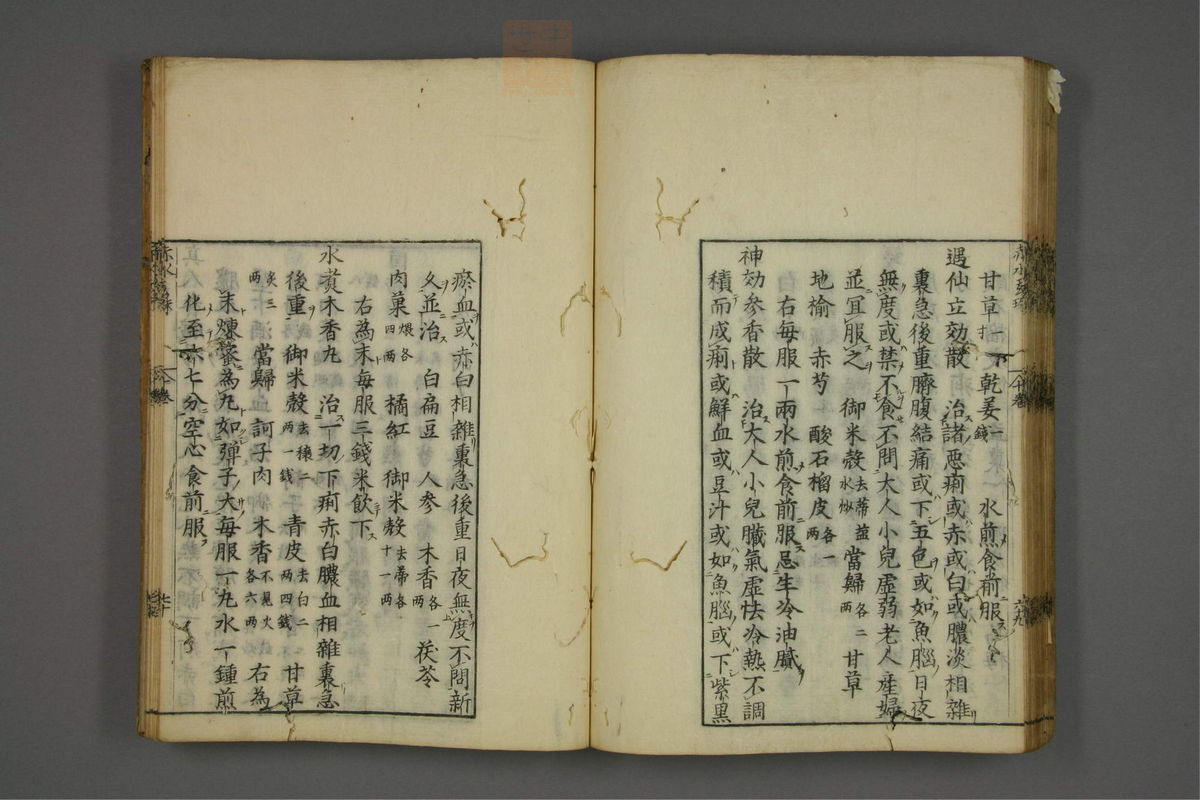 甘草　乾姜一錢　水煎食前服
遇仙立効散　治諸惡痢或赤或白或膿淡相雜
裏急後重臍腹結痛或下五色或如魚腦日夜
無度或禁不食不問大人小兒虛弱老人産婦
並冝服之　御米殼去蒂盖水炒　當歸各二兩　甘草
地榆　赤芍　酸石榴皮各一兩
右每服一兩水煎食前服忌生冷油膩
神効參香散　治大人小兒臟氣虛怯冷熱不調
積而成痢或鮮血或豆汁或如魚腦或下紫黒
瘀血或赤白相雜裏急後重日夜無度不問新
久並治　白扁豆　人參　木香各一兩　茯苓
肉菓煨各四兩　橘紅　御米殼去蒂各十一兩
右為末每服三錢米飲下
水煮木香丸　治一切下痢赤白膿血相雜裏急
後重　御米殼去穰二兩一錢　青皮去白二兩四錢　甘草
炙三兩　當歸　訶子肉　木香不見火各六兩　右為
末煉蜜為丸如彈子大每服一丸水一鍾煎
化至六七分空心食前服